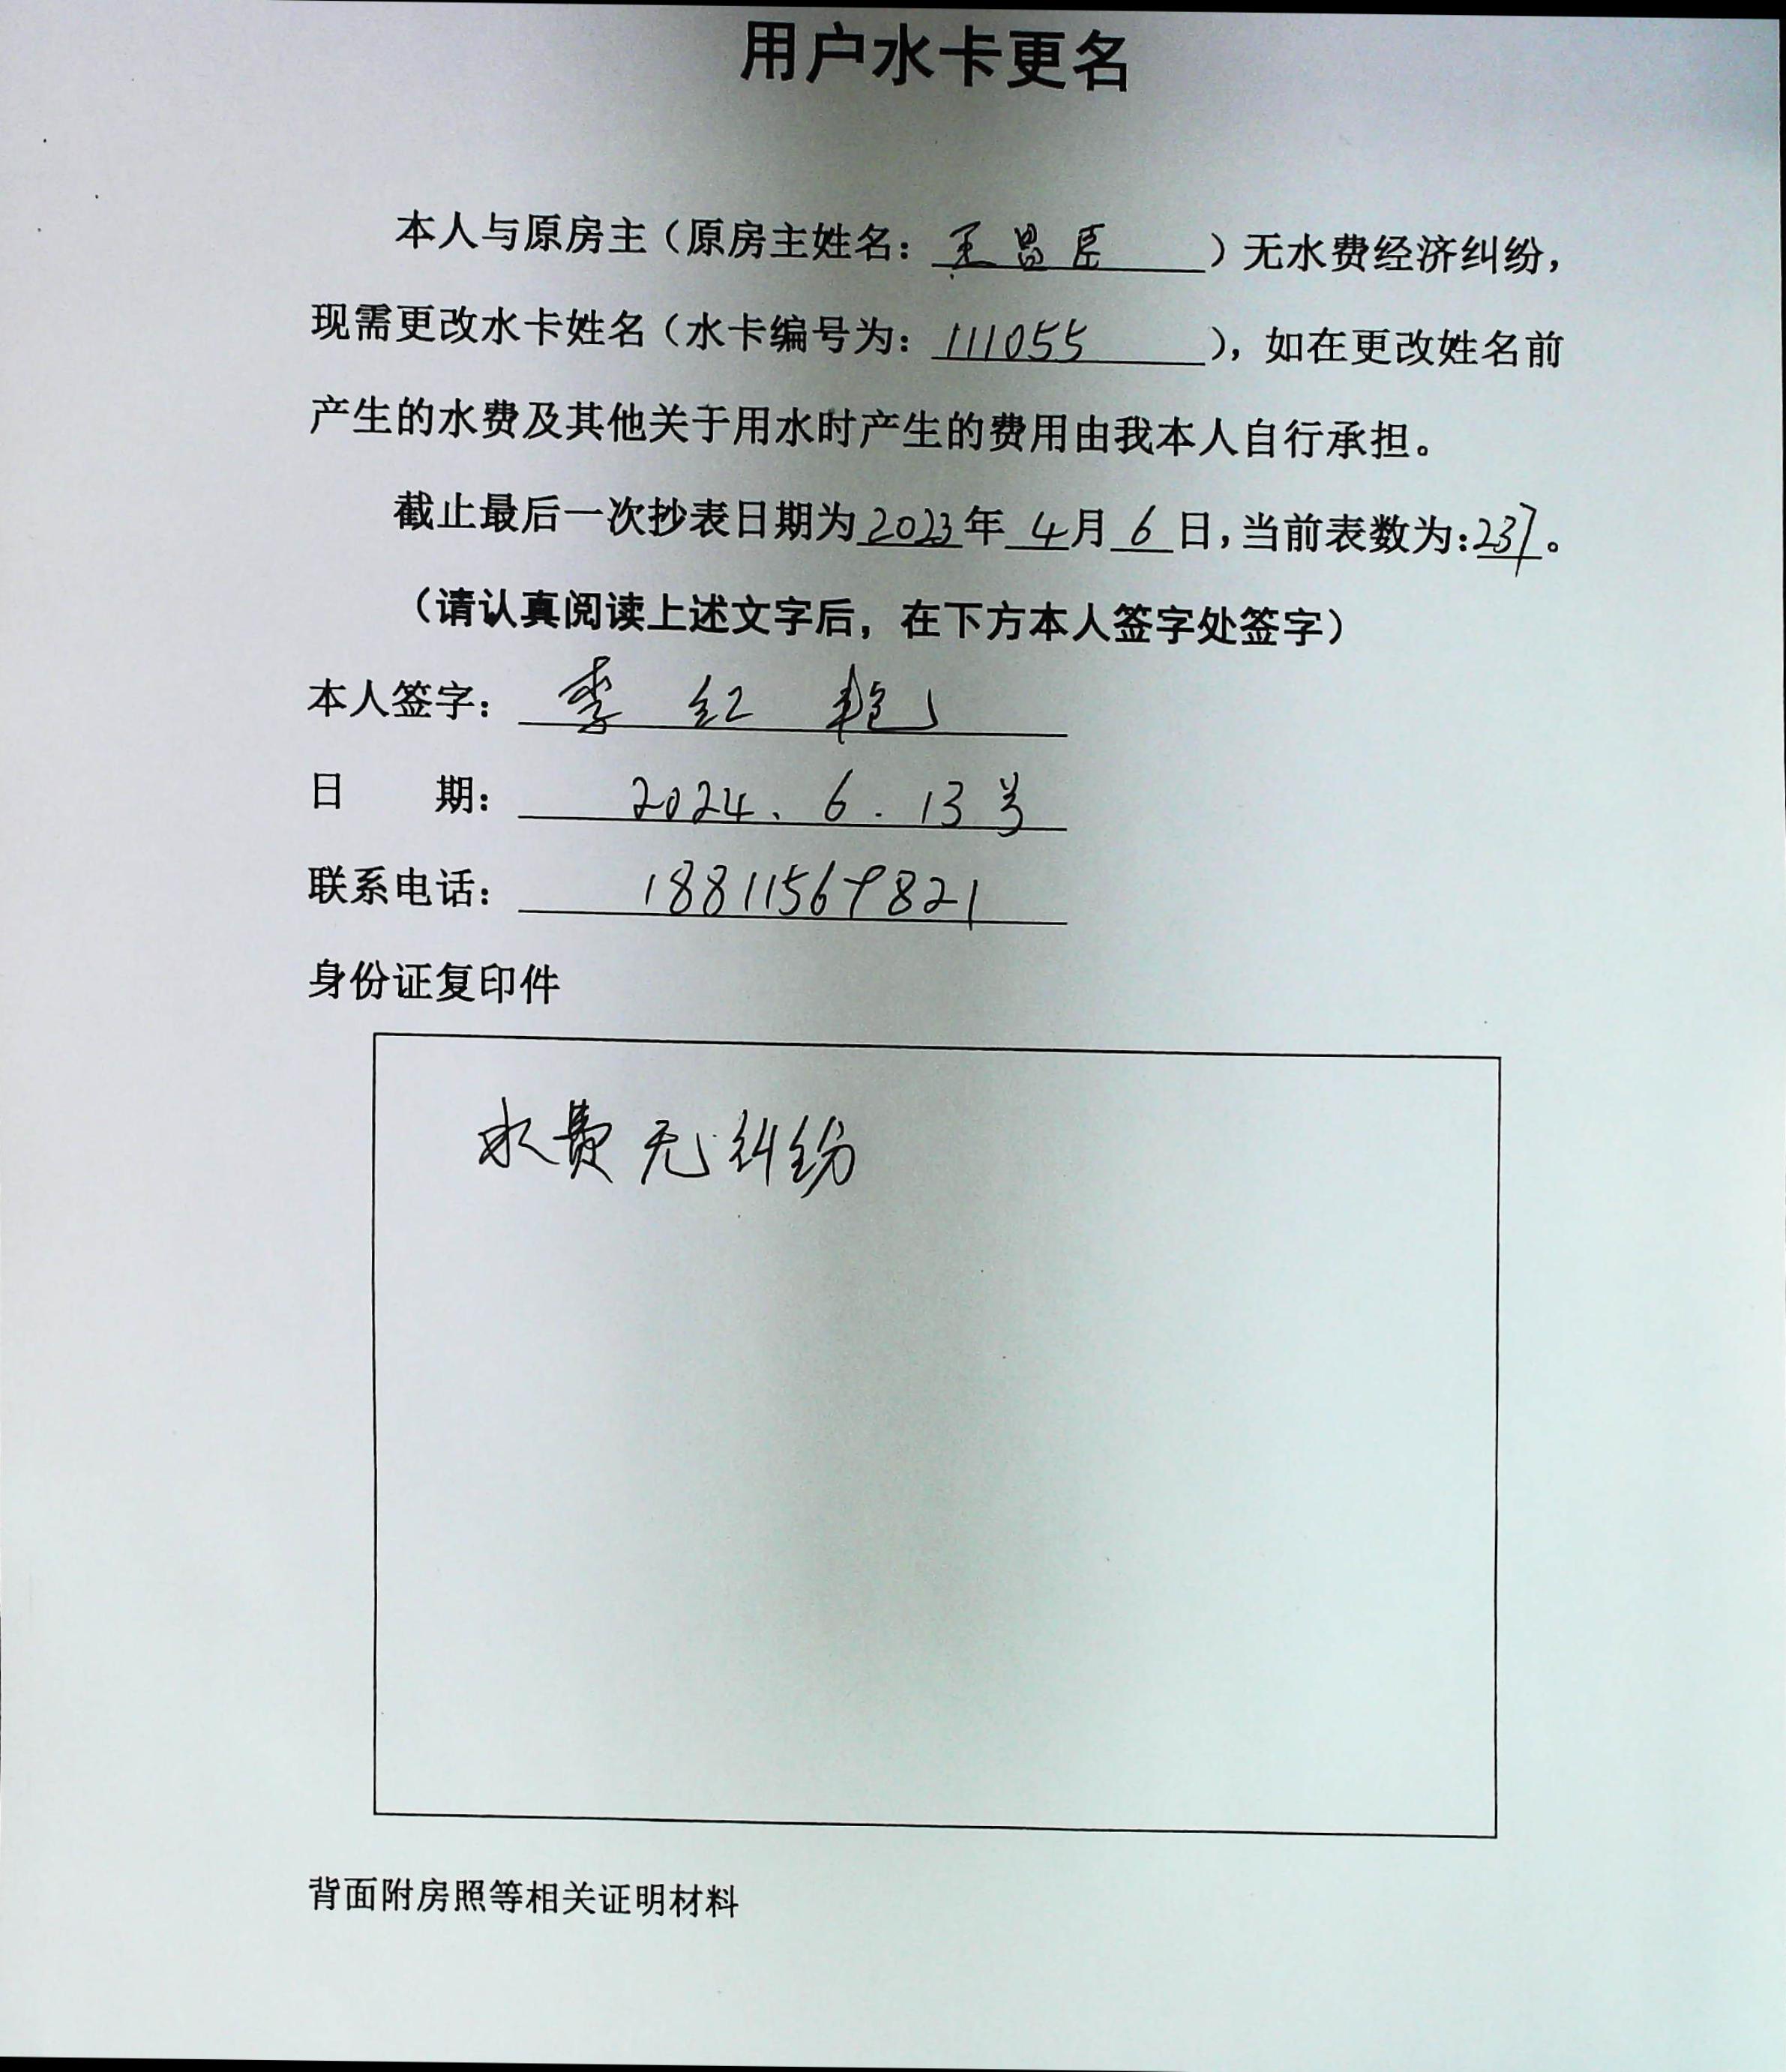 用户水卡更名
本人与原房主（原房主姓名：王昌臣）无水费经济纠纷，
现需更改水卡姓名（水卡编号为：111055），如在更改姓名前
产生的水费及其他关于用水时产生的费用由我本人自行承担。
截止最后一次抄表日期为2023年4月6日，当前表数为：237。
（请认真阅读上述文字后，在下方本人签字处签字）
本人签字：李红艳
日期：2024.6.13号
联系电话：18811569821
身份证复印件
水费无纠纷
背面附房照等相关证明材料